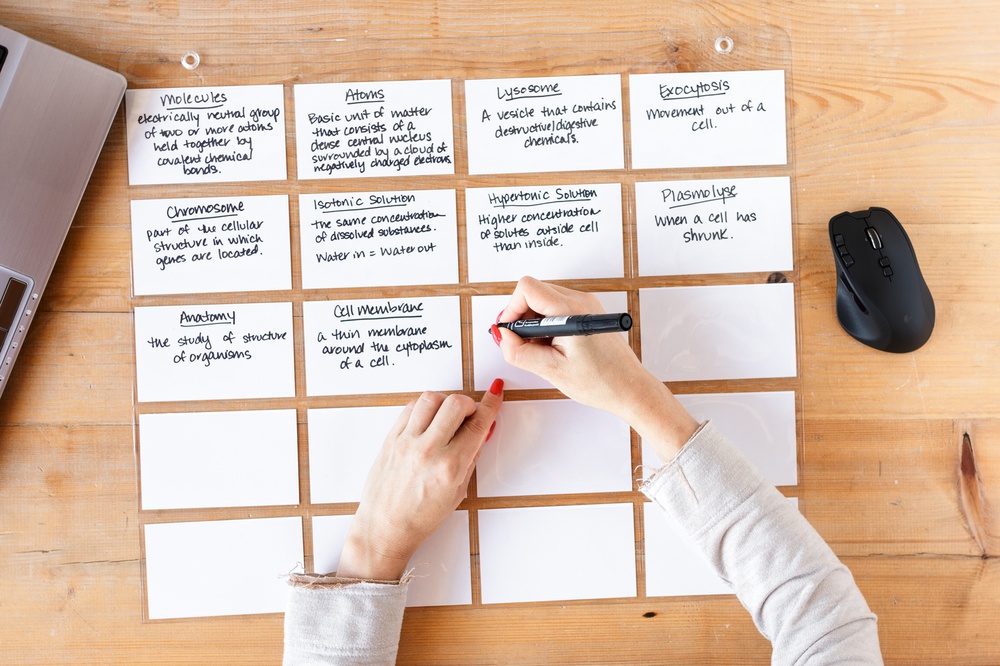 Molecules
electrically neutral group
of two or more atoms
held together by
covalent chemical
bonds.
Atoms
Basic unit of matter
that consists of a
dense central nucleus
surrounded by a cloud of
negatively charged electrons
Lysosome
A vesicle that contains
destructive/digestive
chemicals.
Exocytosis
Movement out of a
cell.
Chromosome
part of the cellular
structure in which
genes are located.
Isotonic Solution
the same concentration
of dissolved substances.
Water in = Water out
Hypertonic Solution
Higher concentration
of solutes outside cell
than inside.
Plasmolyse
When a cell has
shrunk.
Anatomy
the study of structure
of organisms
Cell membrane
a thin membrane
around the cytoplasm
of a cell.